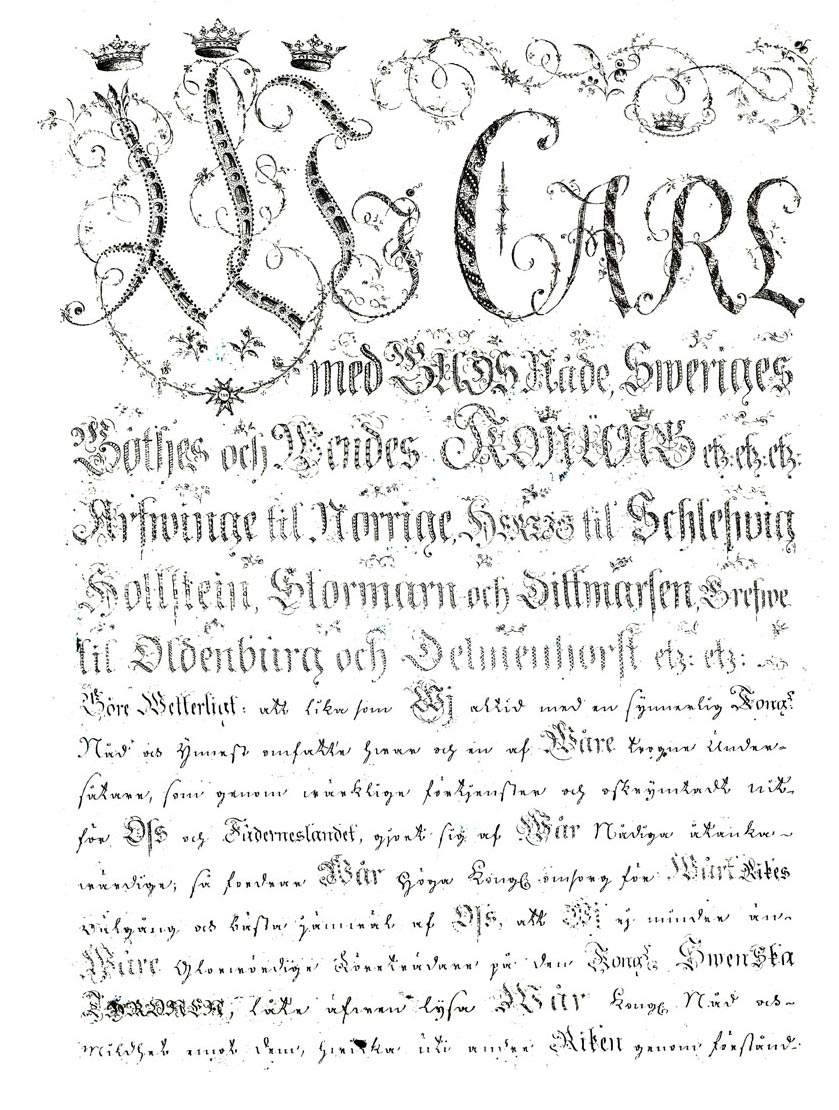 Wij CARL
med GUDS Nåde, Sweriges
Göthes och Wendes KONUNG etz: etz: etz:
Arfwinge til Norrige, Hertig til Schleswig
Hollstein, Stormarn och Dittmarsen, Grefwe
til Oldenburg och Delmenhorst etz: etz:
Göre Wetterligt: att lika som Wj altid med en synnerlig Kongl
Nåd och Ynnest omfatte hwar och en af Wåre trogne Under-
såtare, som genom wärklige förtjenster och oskrymtadt nit
för Oss och Fäderneslandet, gjort sig af Wår Nådiga åtanka
wärdige; så fordrar Wår Höga Kongl omsorg för Wårt Rikes
välgång och bästa jämwäl af Oss, att Wj ej mindre än
Wåre Glorwördige Företrädare på den Kongl Swenska
THRONEN, låte äfwen lysa Wår Kongl Nåd och
Mildhet emot dem, hwilka uti andre Riken genom förstånd